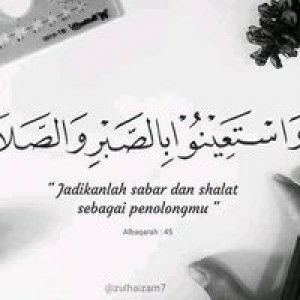 وَاسْتَعِيْنُوْا بِالصَّبْرِ وَالصَّلَا
" Jadikanlah sabar dan shalat
sebagai penolongmu "
Albaqarah : 45
@zulhaizam7